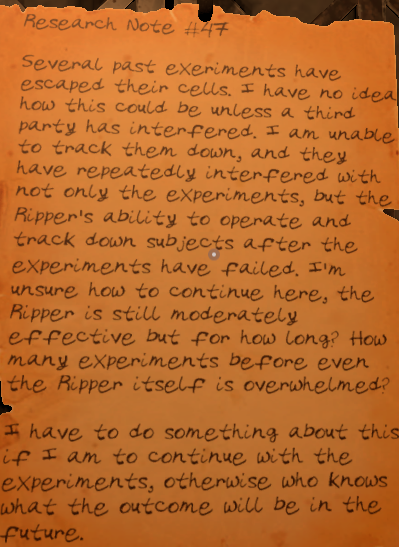 Research Note #47
Several past experiments have
escaped their cells. I have no idea
how this could be unless a third
party has interfered. I am unable
to track them down, and they
have repeatedly interfered with
not only the experiments, but the
Ripper's ability to operate and
track down subjects after the
experiments have failed. I'm
unsure how to continue here, the
Ripper is still moderately
effective but for how long? How
many experiments before even
the Ripper itself is overwhelmed?
I have to do something about this
if I am to continue with the
experiments, otherwise who knows
what the outcome will be in the
future.